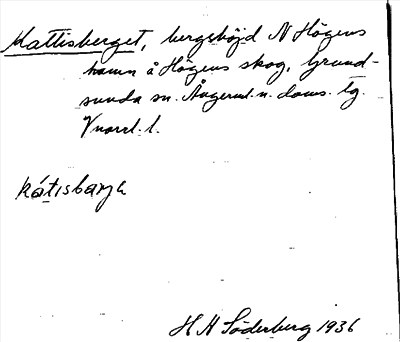 Kattisberget, bergshöjd N Högens
hamn å Högens skog, Grund-
sunda sn. Ångerml. n. doms. tg.
Vnorrl. l.
kátisbarjə
H H Söderberg 1936